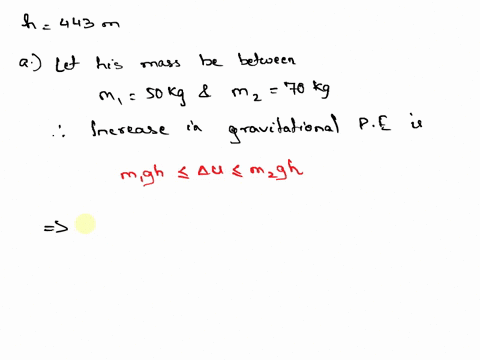 h = 443 m
a.) Let his mass be between
m₁ = 50 Kg & m₂ = 70 Kg
∴ Increase in gravitational P.E is
m₁gh ≤ ΔU ≤ m₂gh
=>